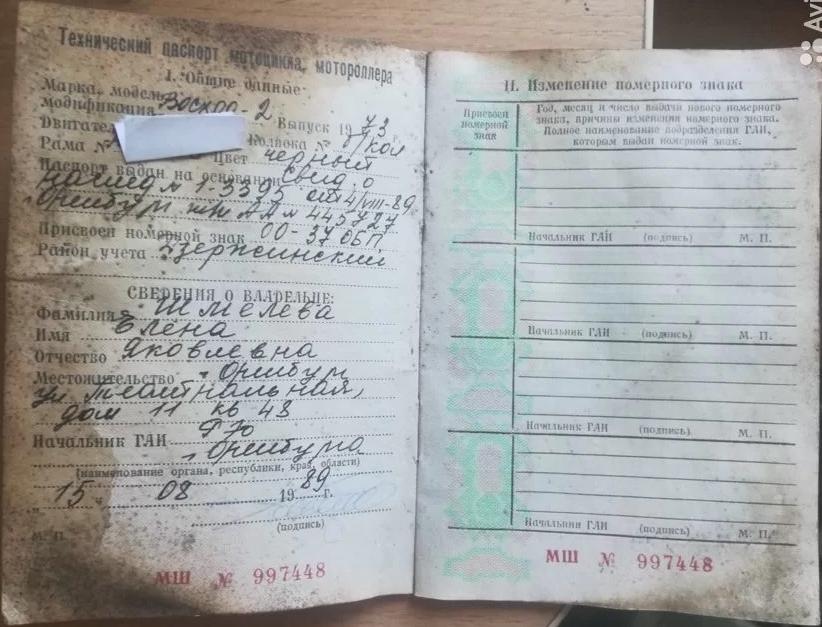 Технический паспорт мотоцикла, мотороллера
I. Общие данные
Марка, модель
модификация Восход-2
Выпуск 1973 г.
Двигатель
Коляска № б/кол
Рама №
Цвет черный
Паспорт выдан на основании Свид. о
наслед № 1-3395 от 4/VIII-89
г. Оренбург АА № 445727
Присвоен номерной знак 00-37 ОБП
Район учета Дзержинский
СВЕДЕНИЯ О ВЛАДЕЛЬЦЕ:
Фамилия Шмелева
Имя Елена
Отчество Яковлевна
Местожительство г. Оренбург
ул Театральная,
дом 11 кв 48
Начальник ГАИ
г. Оренбурга
(наименование органа, республики, края, области)
" 15 " 08 1989 г.
(подпись)
М. П.
МШ № 997448
II. Изменение номерного знака
Присвоен номерной знак
Год, месяц и число выдачи нового номерного
знака, причины изменения номерного знака.
Полное наименование подразделения ГАИ,
которым выдан номерной знак.
Начальник ГАИ (подпись) М. П.
Начальник ГАИ (подпись) М. П.
Начальник ГАИ (подпись) М. П.
Начальник ГАИ (подпись) М. П.
МШ № 997448
Avi